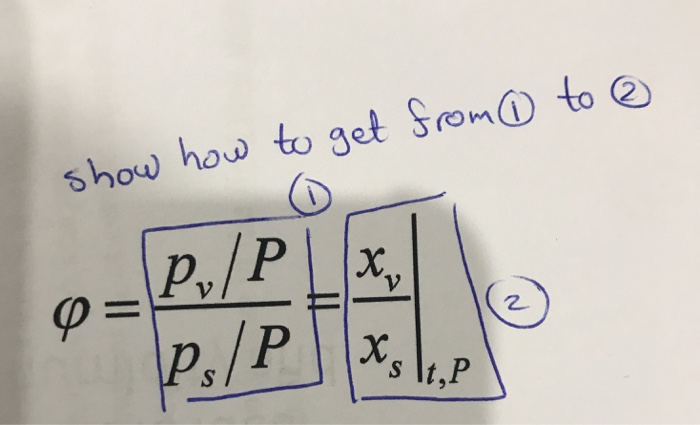 show how to get from ① to ②
①
φ = p_v/P / p_s/P = x_v / x_s |_t,P ②